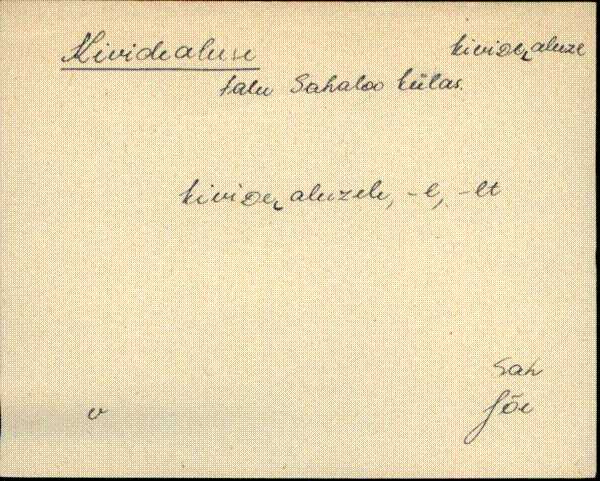 Kividealuse kiviDe‿aluze
talu Sahaloo külas.
kiviDe‿aluzele, -l, -lt
Sah
Jõe
v